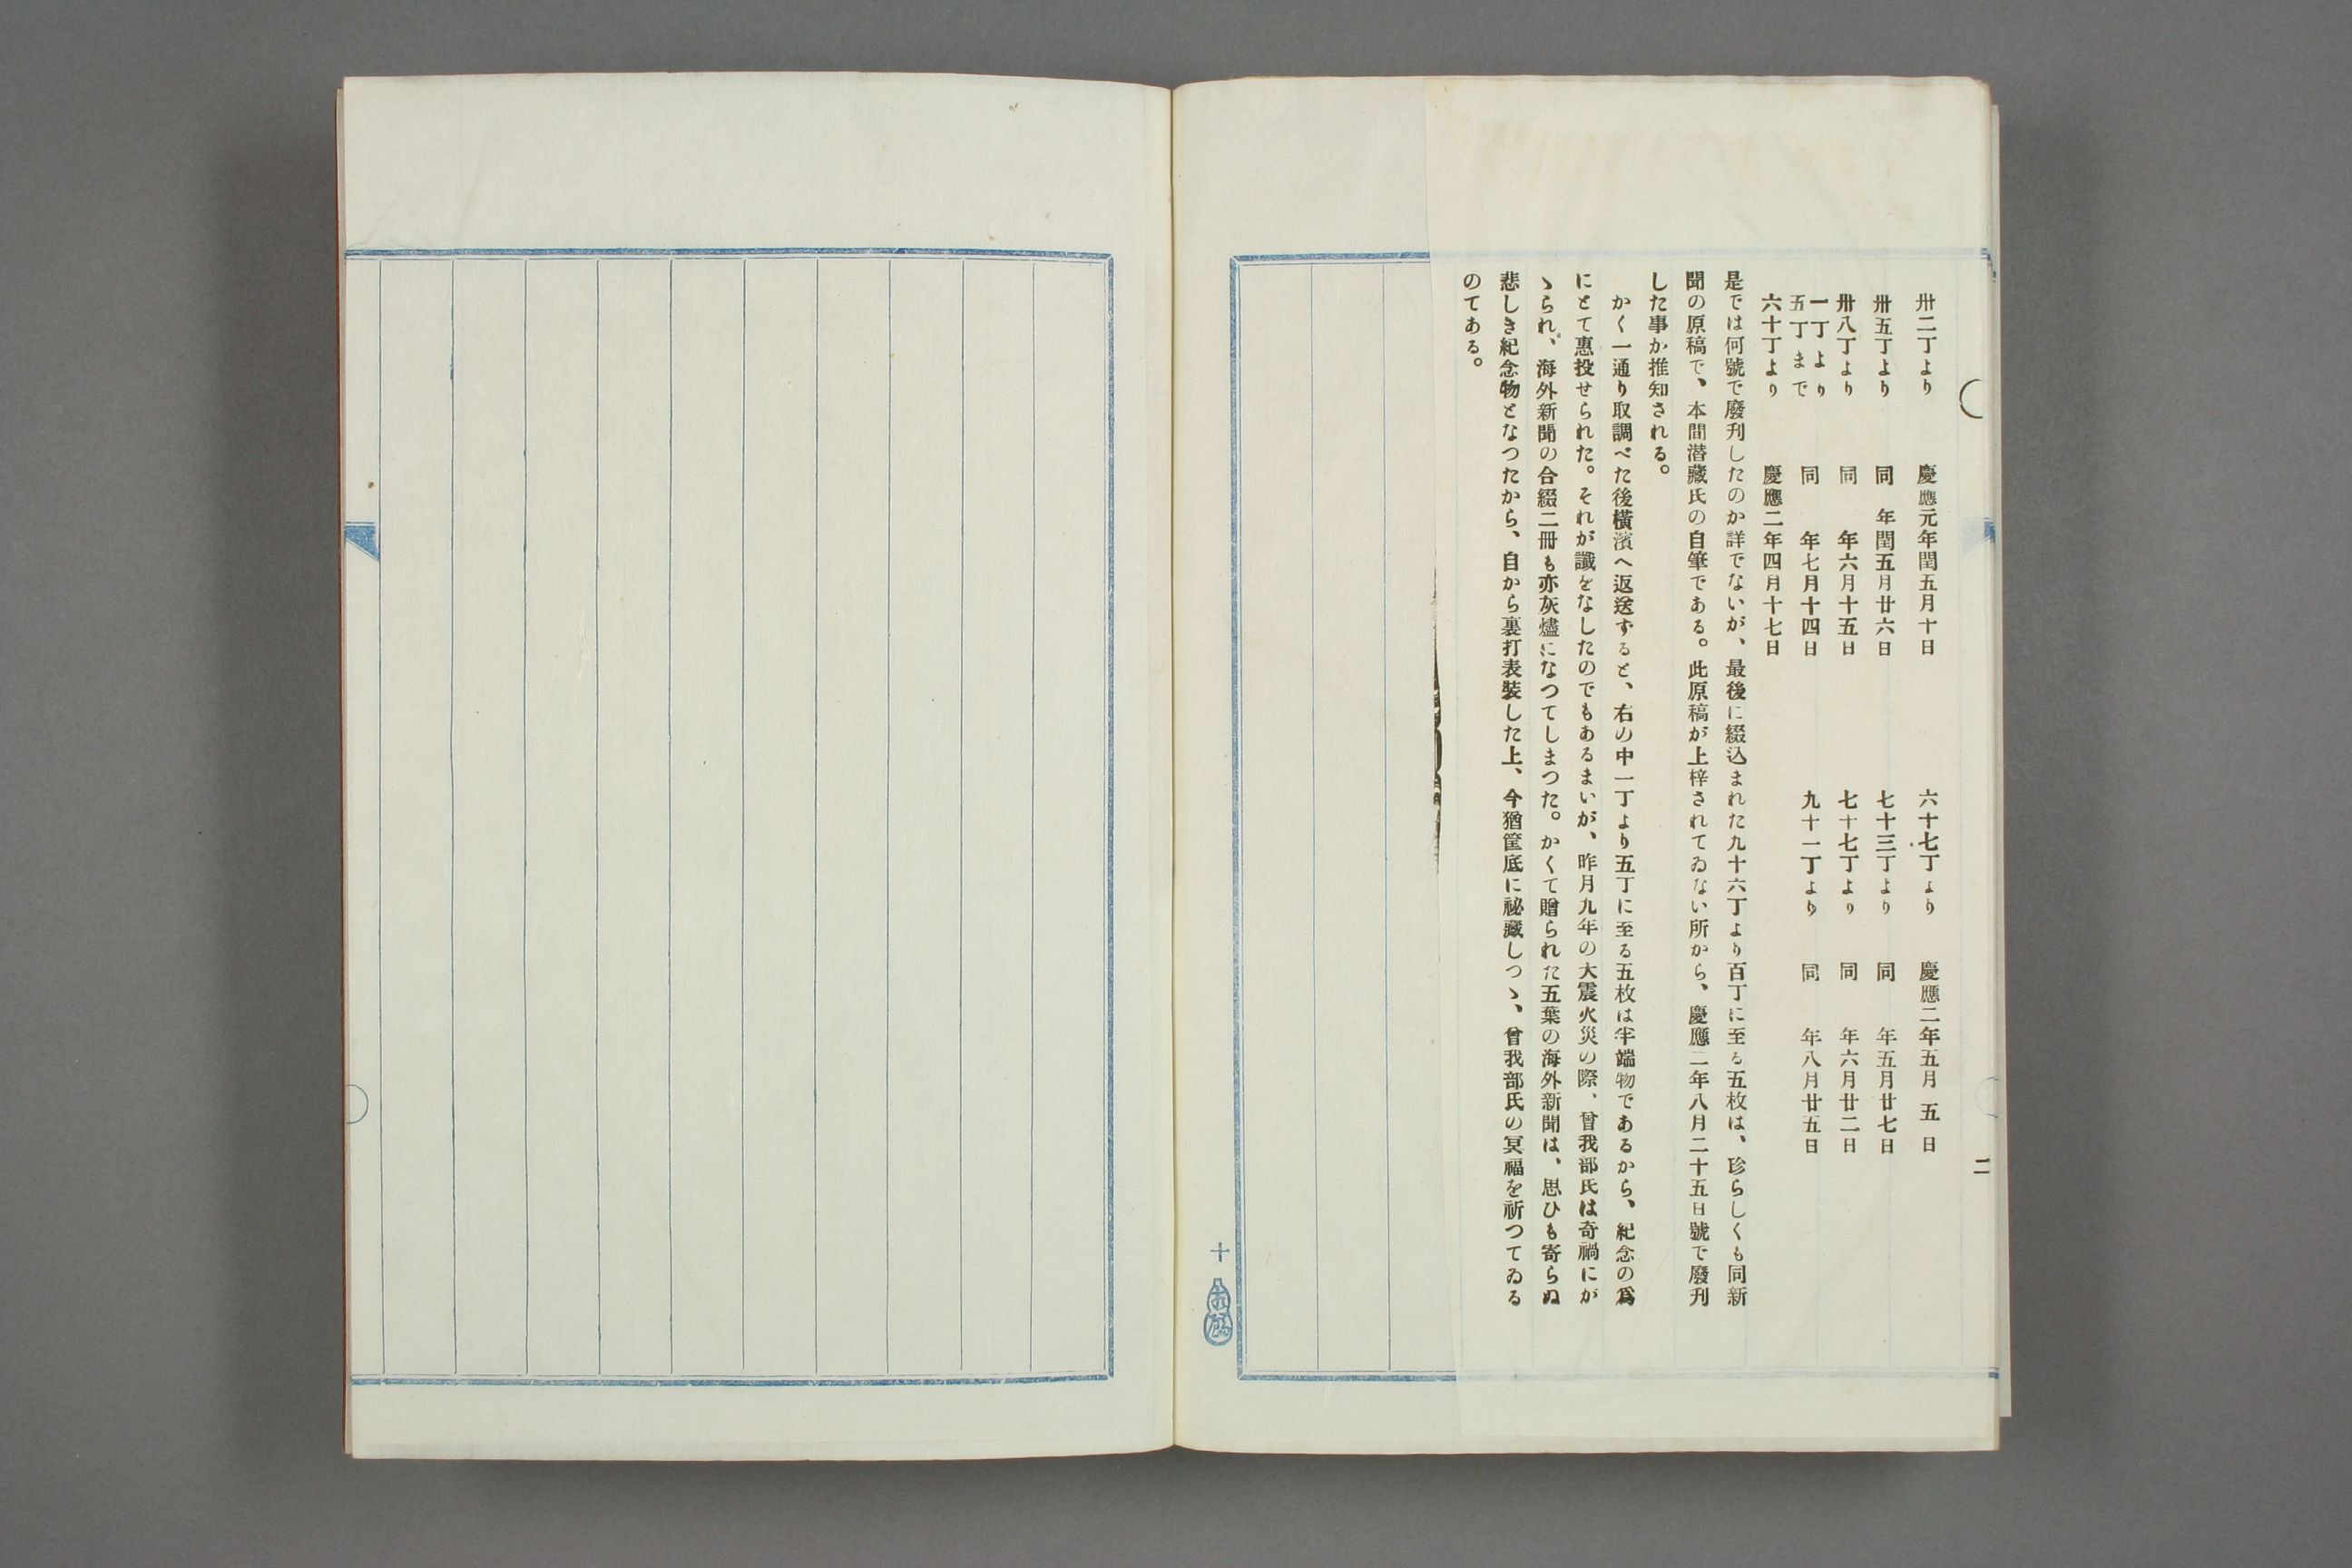 二
卅二丁より　慶應元年閏五月十日　六十七丁より　慶應二年五月五日
卅五丁より　同　年閏五月廿六日　七十三丁より　同　年五月廿七日
卅八丁より　同　年六月十五日　七十七丁より　同　年六月廿二日
一丁より
五丁まで　同　年七月十四日　九十一丁より　同　年八月廿五日
六十丁より　慶應二年四月十七日
是では何號で廢刋したのか詳でないが、最後に綴込まれた九十六丁より百丁に至る五枚は、珍らしくも同新
聞の原稿で、本間潜藏氏の自筆である。此原稿が上梓されてゐない所から、慶應二年八月二十五日號で廢刋
した事か推知される。
かく一通り取調べた後橫濱へ返送すると、右の中一丁より五丁に至る五枚は半端物であるから、紀念の爲
にとて惠投せられた。それが讖をなしたのでもあるまいが、昨月九年の大震火災の際、曾我部氏は奇禍にが
ゝられ、海外新聞の合綴二冊も亦灰燼になつてしまつた。かくて贈られた五葉の海外新聞は、思ひも寄らぬ
悲しき紀念物となつたから、自から裏打表裝した上、今猶筐底に祕藏しつゝ、曾我部氏の冥福を祈つてゐる
のてある。
十